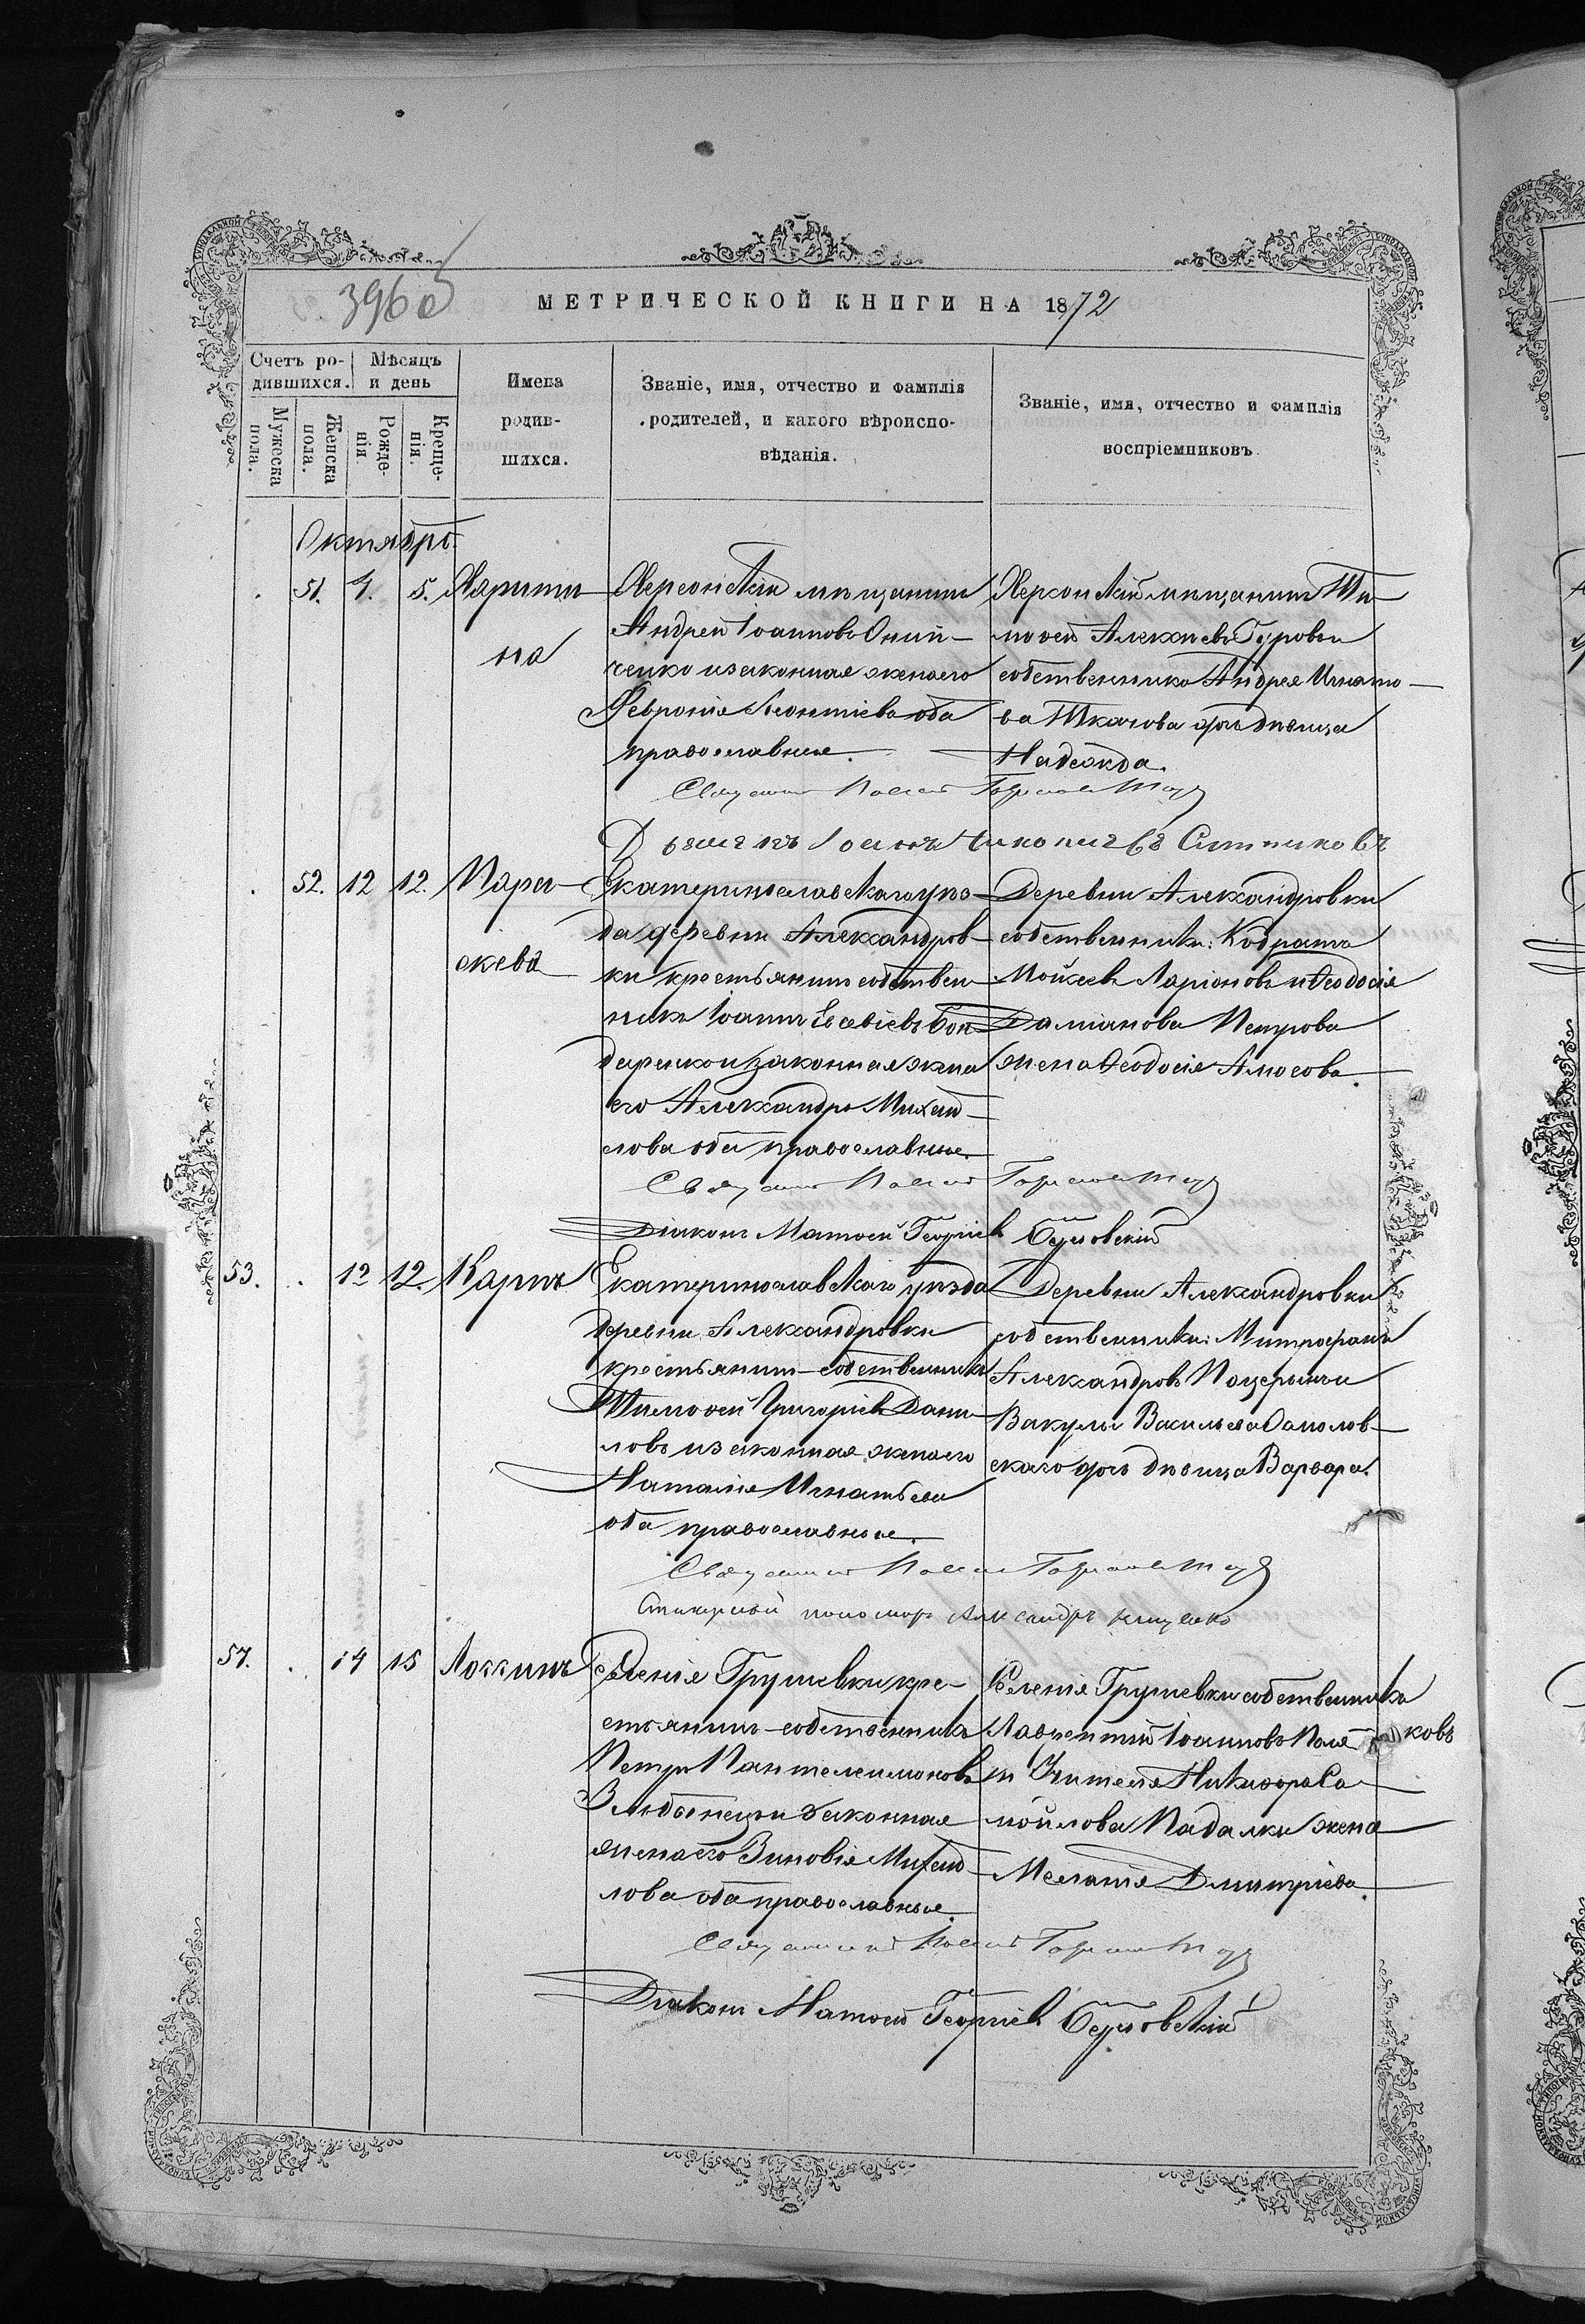 396 об
МЕТРИЧЕСКОЙ КНИГИ НА 1872
Счетъ ро-
дившихся.
Мѣсяцъ
и день
Мужеска
пола.
Женска
пола.
Рожде-
нія.
Креще-
нія.
Имена
родив-
шихся.
Званіе, имя, отчество и фамилія
родителей, и какого вѣроиспо-
вѣданія.
Званіе, имя, отчество и фамилія
воспріемниковъ.
Октябрь.
51. 4. 5. Харити-
на
Херсонскій мѣщанинъ
Андрей Іоанновъ Оний-
ченко и законная жена его
Февронія Леонтіева оба
православные.
Херсонскій мѣщанинъ Ти-
моѳей Алексѣевъ Гуровъ и
собственника Андрея Игнато-
ва Ткачова дочь дѣвица
Надежда.
Священникъ
Дьячекъ Іоаннъ Ситниковъ
52. 12 12. Парас-
кева
Екатеринославскаго уѣз-
да деревни Александров-
ки крестьянинъ собствен-
никъ Іоаннъ Евсевіевъ Бон-
даренко и законная жена
его Александра Михай-
лова оба православные.
Деревни Александровки
собственники: Кодратъ
Мойсеевъ Ларіоновъ и Ѳеодосія
Даміанова Петрова
жена Ѳеодосія Амосова.
Священникъ
Діаконъ Матѳей Георгіевъ
53. . 12 12. Карпъ
Екатеринославскаго уѣзда
деревни Александровки
крестьянинъ-собственникъ
Тимоѳей Григоріевъ Дани-
ловъ и законная жена его
Наталія Игнатьева
оба православные.
Деревни Александровки
собственники: Митрофанъ
Александровъ и
Вакулы Васильева
скаго дочь дѣвица Варвара.
Священникъ
пономарь Александръ
57. . 14 15 Логгинъ
Селенія Грушевки кре-
стьянинъ-собственникъ
Петръ Пантелеимоновъ
и законная
жена его Зиновія Михай-
лова оба православные.
Селенія Грушевки собственникъ
Лаврентій Іоанновъ Поля ковъ
и Учителя Никифора Са-
мойлова Падалки жена
Меланія Дмитріева.
Священникъ
Діаконъ Матѳей Георгіевъ